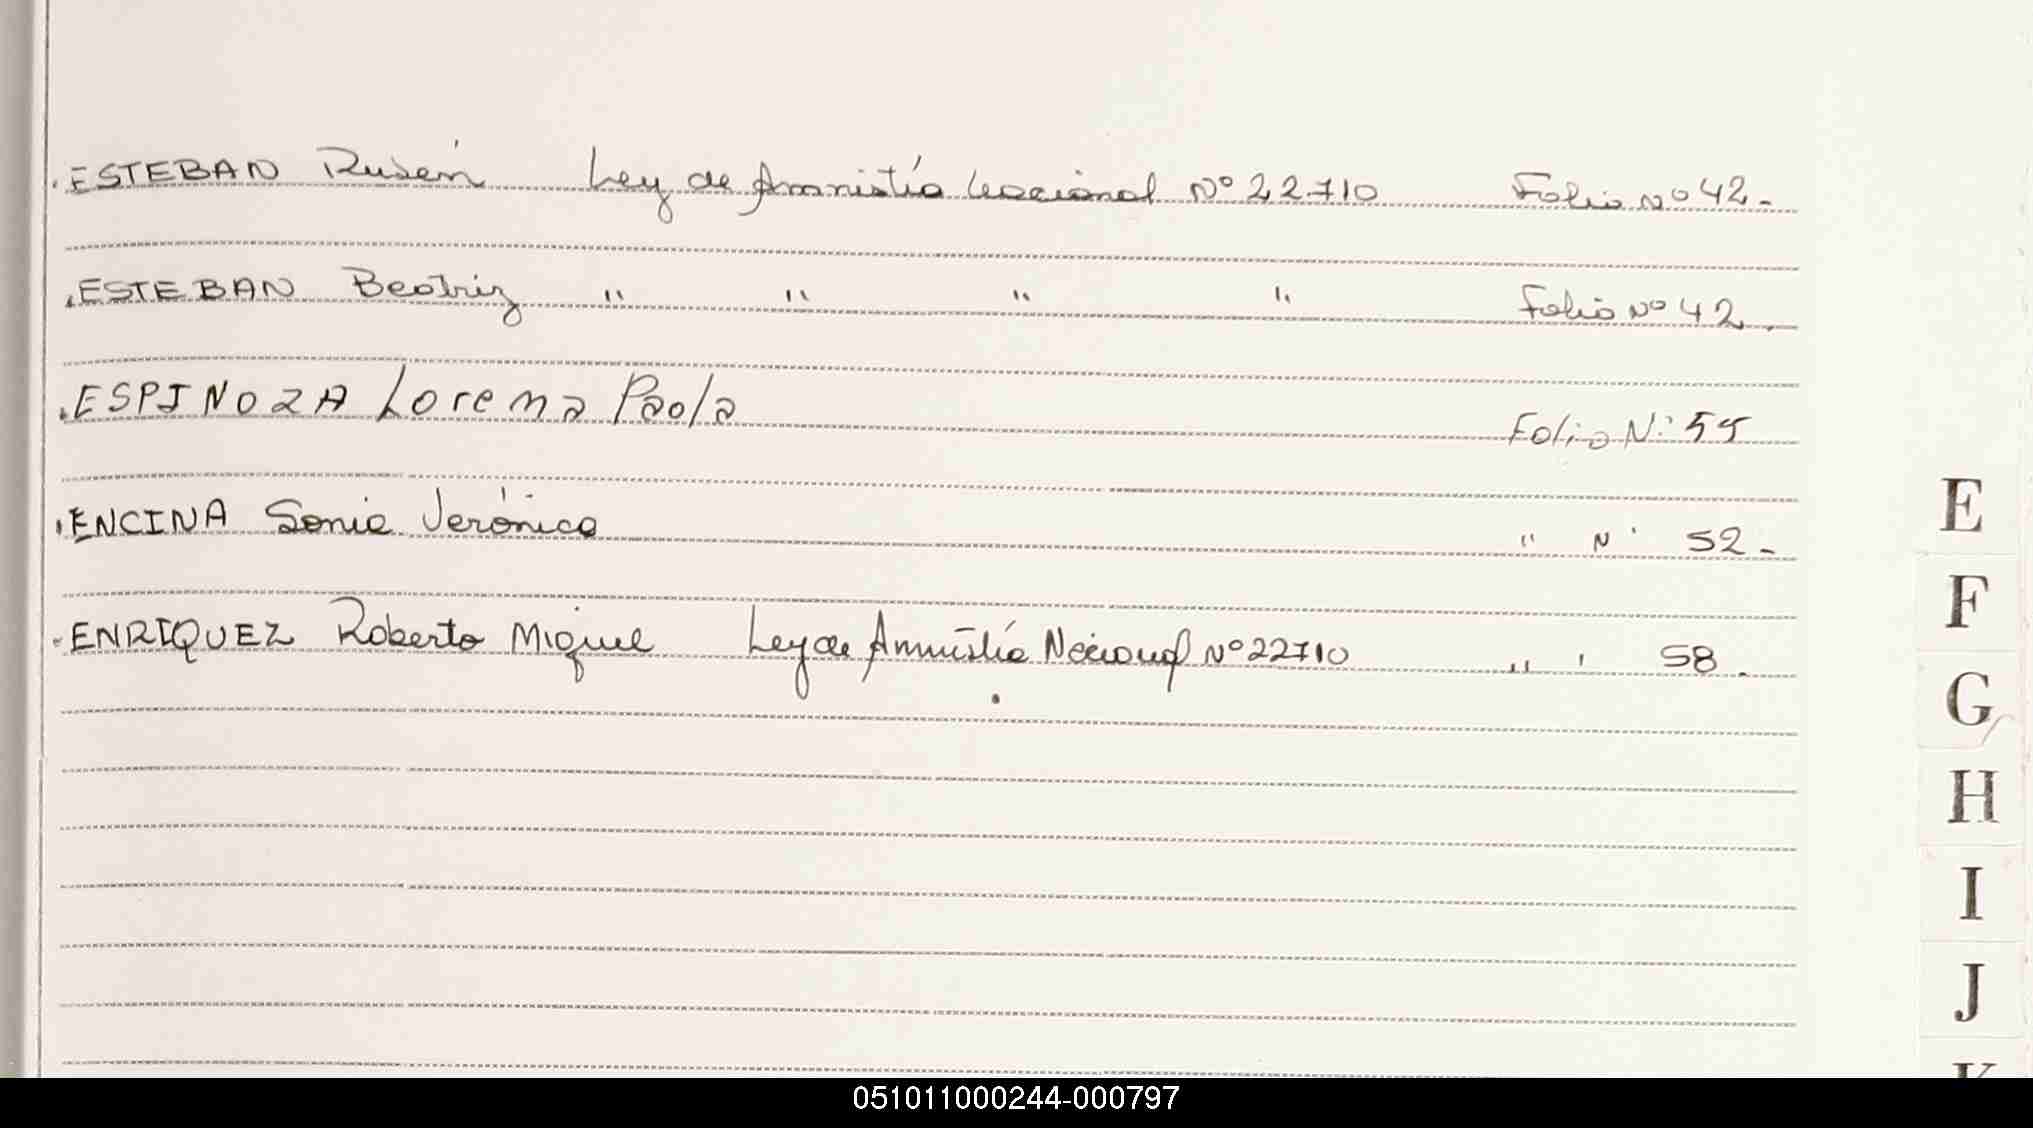 ESTEBAN Rubén Ley de Amnistía Nacional Nº 22710 Folio Nº 42.-
ESTEBAN Beatriz " " " " Folio Nº 42.
ESPINOZA Lorena Paola Folio N: 55
ENCINA Sonia Verónica " N· 52.-
ENRIQUEZ Roberto Miguel Ley de Amnistía Nacional Nº 22710 " ' 58.
E
F
G
H
I
J
K
051011000244-000797